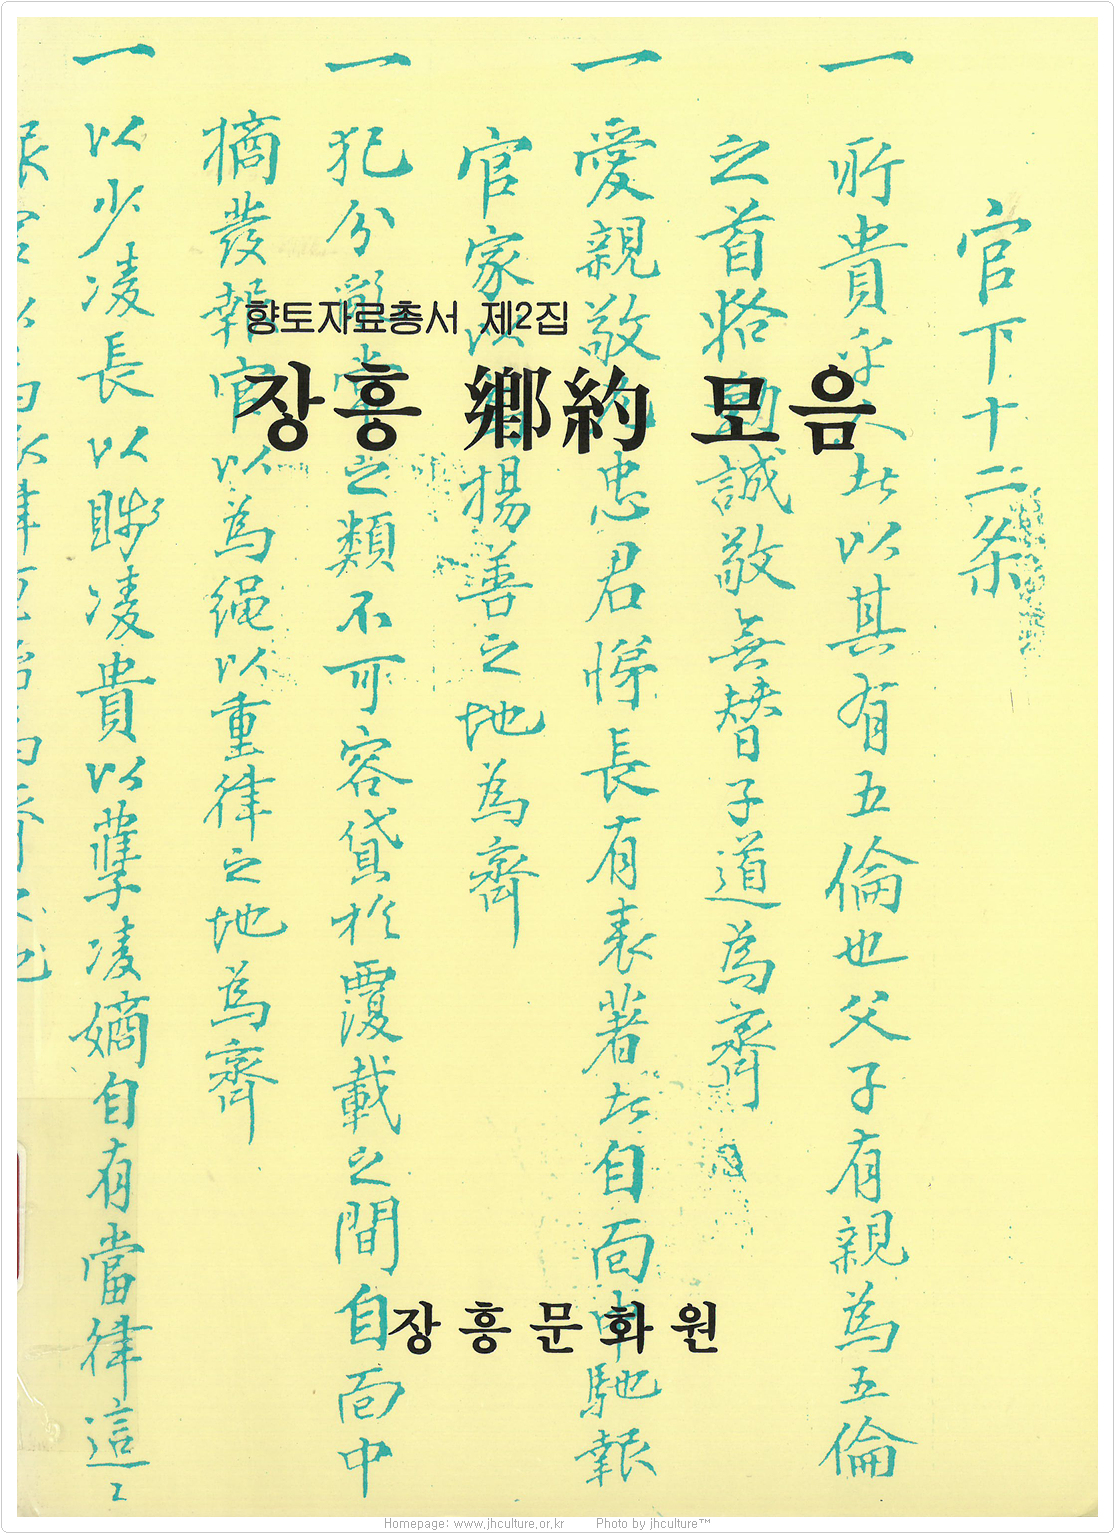 향토자료총서 제2집
장흥 鄕約 모음
장흥문화원
官下十二条
一 所貴乎人者以其有五倫也父子有親為五倫
之首恪勤誠敬無替子道為齊
一 愛親敬兄忠君悌長有表著者自面中馳報
官家以揚善之地為齊
一 犯分之類不可容貸於覆載之間自面中
摘發報官以為繩以重律之地為齊
一 以少凌長以賤凌貴以孽凌嫡自有當律這〻
Homepage: www.jhculture.or.kr Photo by jhculture™